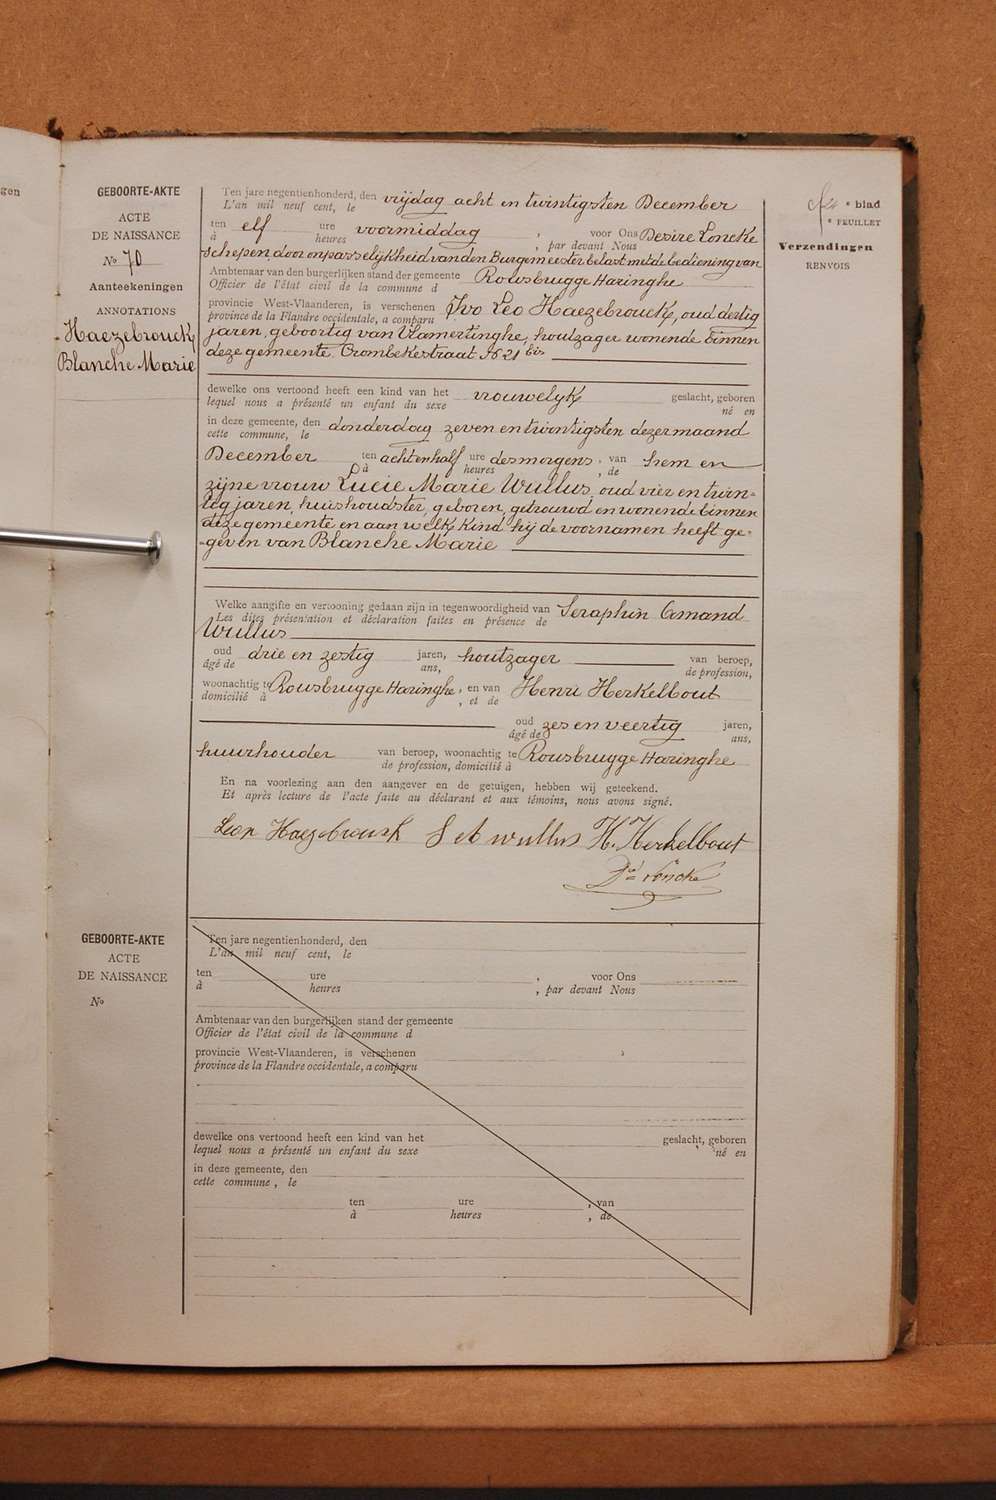 gen
GEBOORTE-AKTE
ACTE
DE NAISSANCE
No 70
Aanteekeningen
ANNOTATIONS
Haezebrouck
Blanche Marie
Ten jare negentienhonderd, den vrijdag acht en twintigsten December
L'an mil neuf cent, le
ten elf ure voormiddag, voor Ons Desiré Loncke
à heures , par devant Nous
Schepen door onpasselijkheid van den Burgemeester belast met de bediening van
Ambtenaar van den burgerlijken stand der gemeente Rousbrugge Haringhe
Officier de l'état civil de la commune d
provincie West-Vlaanderen, is verschenen Ivo Leo Haezebrouck, oud dertig
province de la Flandre occidentale, a comparu
jaren, geboortig van Vlamertinghe, houtzager wonende binnen
deze gemeente Crombekestraat No 21 bis
dewelke ons vertoond heeft een kind van het vrouwelyk geslacht, geboren
lequel nous a présenté un enfant du sexe né en
in deze gemeente, den donderdag zeven en twintigsten dezer maand
cette commune, le
December ten achtenhalf ure des morgens, van hem en
à heures , de
zijne vrouw Lucie Marie Wullus, oud vier en twin-
tig jaren, huishoudster, geboren, getrouwd en wonende binnen
deze gemeente en aan welk kind hij de voornamen heeft ge-
-geven van Blanche Marie
Welke aangifte en vertooning gedaan zijn in tegenwoordigheid van Seraphin Amand
Les dites présentation et déclaration faites en présence de
Wullus
oud drie en zestig jaren, houtzager van beroep,
âgé de ans, de profession,
woonachtig te Rousbrugge Haringhe, en van Henri Herkelbout
domicilié à , et de
oud zes en veertig jaren,
âgé de ans,
huurhouder van beroep, woonachtig te Rousbrugge Haringhe
de profession, domicilié à
En na voorlezing aan den aangever en de getuigen, hebben wij geteekend.
Et après lecture de l'acte faite au déclarant et aux témoins, nous avons signé.
Leon Haezebrouck S A wullus H. Herkelbout
Dé Loncke
blad
FEUILLET
Verzendingen
RENVOIS
GEBOORTE-AKTE
ACTE
DE NAISSANCE
No
Ten jare negentienhonderd, den
L'an mil neuf cent, le
ten ure , voor Ons
à heures , par devant Nous
Ambtenaar van den burgerlijken stand der gemeente
Officier de l'état civil de la commune d
provincie West-Vlaanderen, is verschenen
province de la Flandre occidentale, a comparu
dewelke ons vertoond heeft een kind van het geslacht, geboren
lequel nous a présenté un enfant du sexe né en
in deze gemeente, den
cette commune, le
ten ure , van
à heures , de